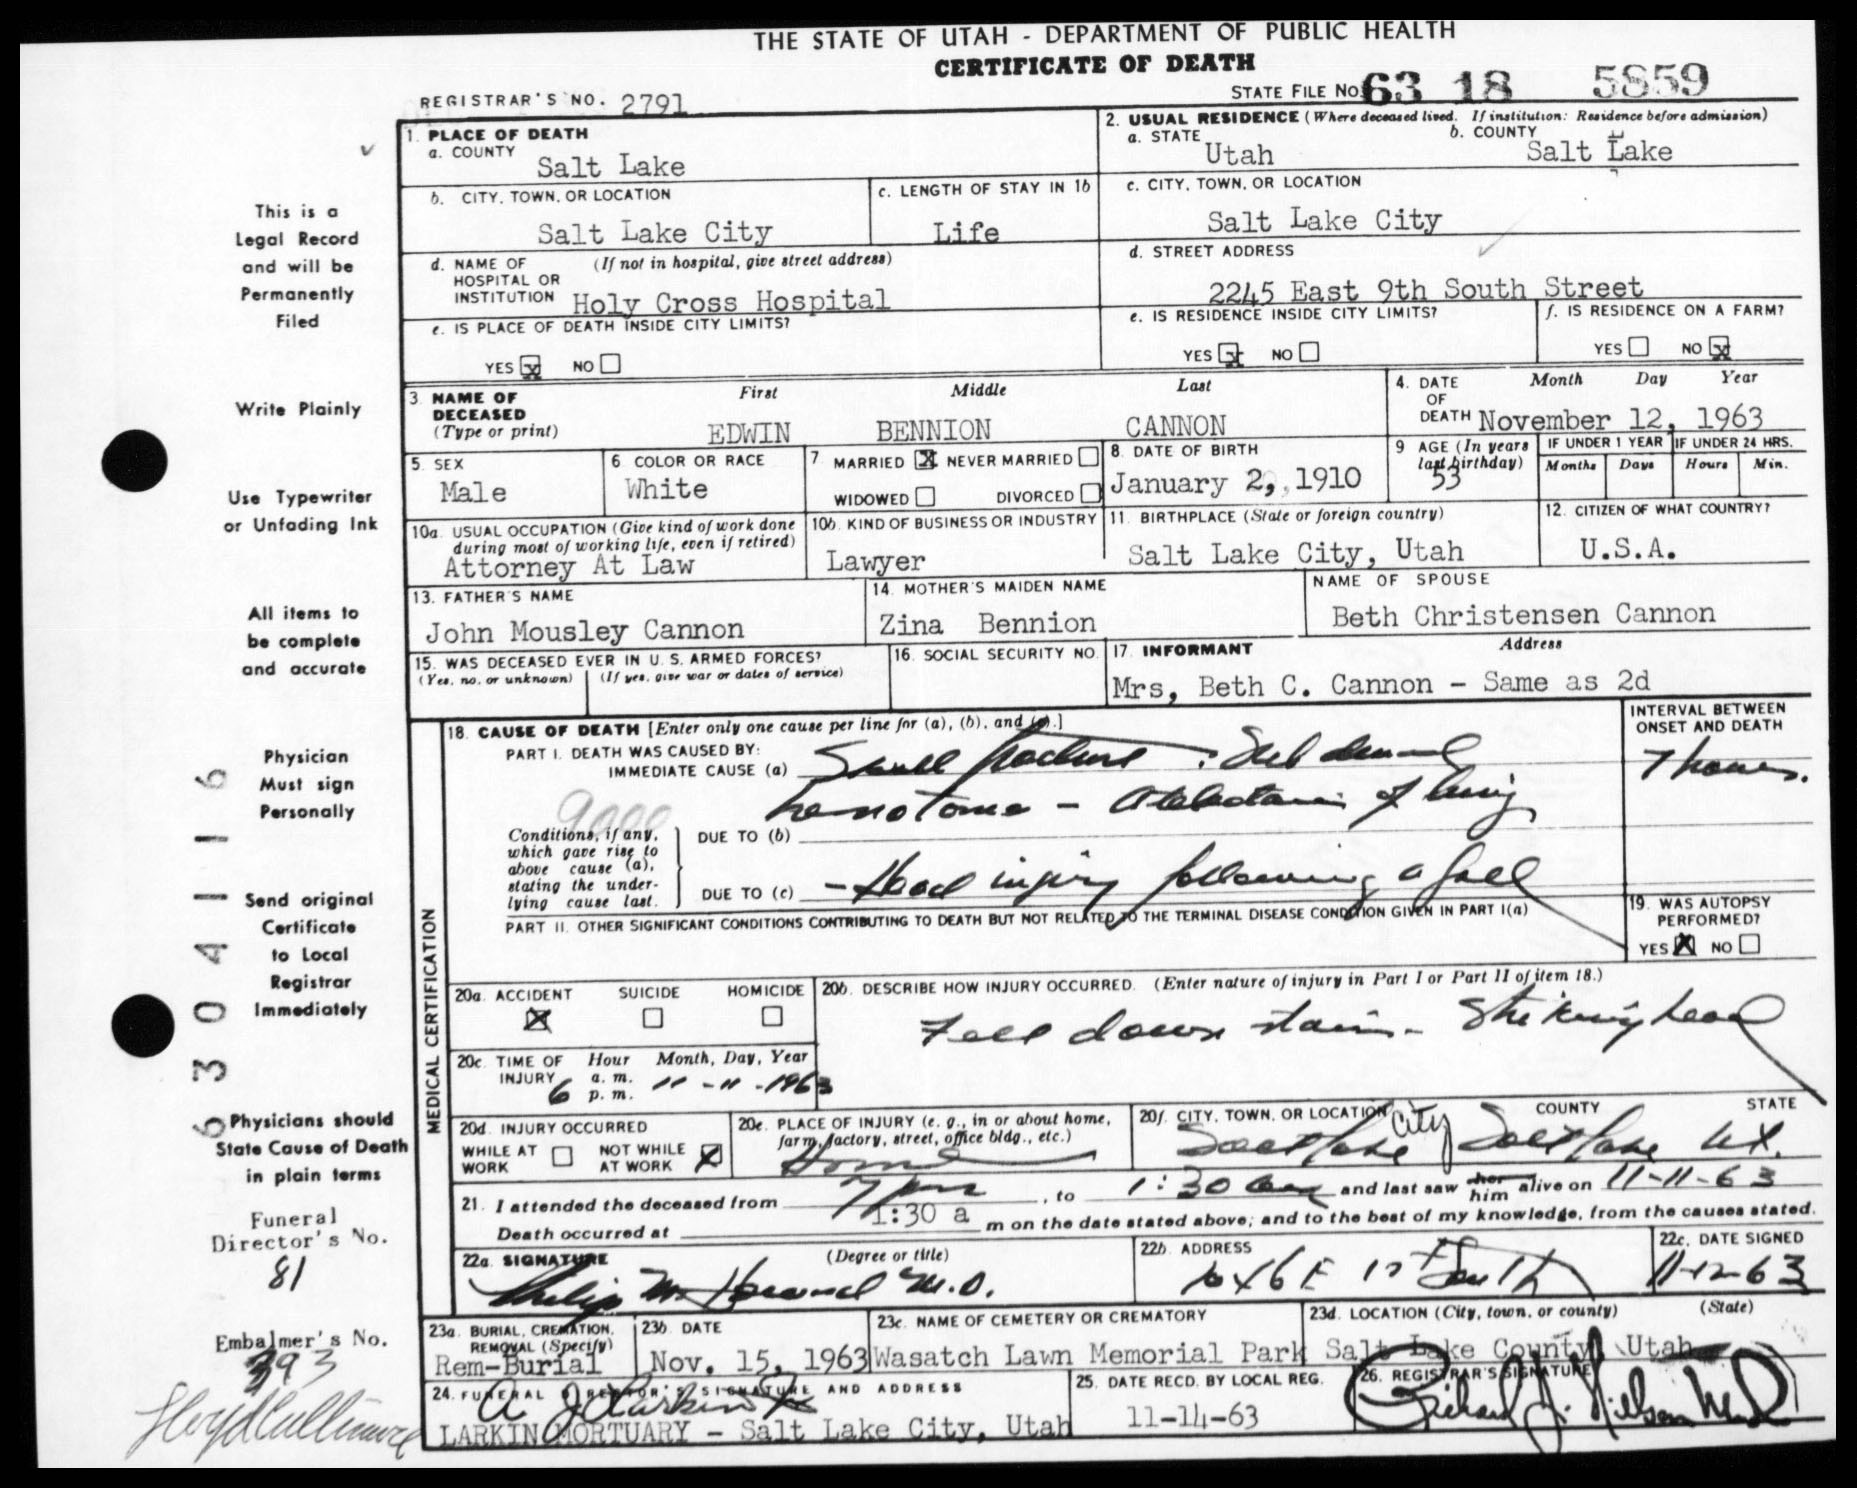 THE STATE OF UTAH - DEPARTMENT OF PUBLIC HEALTH
CERTIFICATE OF DEATH
REGISTRAR'S NO. 2791
STATE FILE NO. 63 18 5859
1. PLACE OF DEATH
a. COUNTY Salt Lake
2. USUAL RESIDENCE (Where deceased lived. If institution: Residence before admission)
a. STATE Utah b. COUNTY Salt Lake
b. CITY, TOWN, OR LOCATION Salt Lake City
c. LENGTH OF STAY IN 1b Life
c. CITY, TOWN, OR LOCATION Salt Lake City
d. NAME OF HOSPITAL OR INSTITUTION (If not in hospital, give street address) Holy Cross Hospital
d. STREET ADDRESS 2245 East 9th South Street
e. IS PLACE OF DEATH INSIDE CITY LIMITS?
YES x NO
e. IS RESIDENCE INSIDE CITY LIMITS?
YES x NO
f. IS RESIDENCE ON A FARM?
YES NO x
3. NAME OF DECEASED (Type or print)
First Middle Last
EDWIN BENNION CANNON
4. DATE OF DEATH Month Day Year
November 12, 1963
5. SEX Male
6. COLOR OR RACE White
7. MARRIED X NEVER MARRIED
WIDOWED DIVORCED
8. DATE OF BIRTH January 2, 1910
9 AGE (In years last birthday) 53
IF UNDER 1 YEAR Months Days
IF UNDER 24 HRS. Hours Min.
10a. USUAL OCCUPATION (Give kind of work done during most of working life, even if retired)
Attorney At Law
10b. KIND OF BUSINESS OR INDUSTRY
Lawyer
11. BIRTHPLACE (State or foreign country)
Salt Lake City, Utah
12. CITIZEN OF WHAT COUNTRY?
U.S.A.
13. FATHER'S NAME
John Mousley Cannon
14. MOTHER'S MAIDEN NAME
Zina Bennion
NAME OF SPOUSE
Beth Christensen Cannon
15. WAS DECEASED EVER IN U. S. ARMED FORCES?
(Yes, no, or unknown) (If yes, give war or dates of service)
16. SOCIAL SECURITY NO.
17. INFORMANT Address
Mrs, Beth C. Cannon - Same as 2d
18. CAUSE OF DEATH [Enter only one cause per line for (a), (b), and (c).]
INTERVAL BETWEEN ONSET AND DEATH
PART I. DEATH WAS CAUSED BY:
IMMEDIATE CAUSE (a) Skull fracture: Subdural
7 hours.
hematoma - Atelectasis of lung
9000
Conditions, if any, which gave rise to above cause (a), stating the underlying cause last.
DUE TO (b)
DUE TO (c) - Head injury following a fall
PART II. OTHER SIGNIFICANT CONDITIONS CONTRIBUTING TO DEATH BUT NOT RELATED TO THE TERMINAL DISEASE CONDITION GIVEN IN PART I(a)
19. WAS AUTOPSY PERFORMED?
YES X NO
MEDICAL CERTIFICATION
20a. ACCIDENT X SUICIDE HOMICIDE
20b. DESCRIBE HOW INJURY OCCURRED. (Enter nature of injury in Part I or Part II of item 18.)
Fell down stairs - Striking head
20c. TIME OF INJURY Hour Month, Day, Year
6 a. m. p. m. 11-11-1963
20d. INJURY OCCURRED
WHILE AT WORK NOT WHILE AT WORK X
20e. PLACE OF INJURY (e. g., in or about home, farm, factory, street, office bldg., etc.)
Home
20f. CITY, TOWN, OR LOCATION COUNTY STATE
Salt Lake City Salt Lake Ut.
21. I attended the deceased from 7 pm, to 1:30 am and last saw her him alive on 11-11-63
Death occurred at 1:30 a m on the date stated above; and to the best of my knowledge, from the causes stated.
22a. SIGNATURE (Degree or title)
Philip M. Howard M.D.
22b. ADDRESS
South
22c. DATE SIGNED
11-12-63
23a. BURIAL, CREMATION, REMOVAL (Specify)
Rem-Burial
23b DATE
Nov. 15, 1963
23c. NAME OF CEMETERY OR CREMATORY
Wasatch Lawn Memorial Park
23d. LOCATION (City, town, or county) (State)
Salt Lake County, Utah
24. FUNERAL DIRECTOR'S SIGNATURE AND ADDRESS
A J Larkin
LARKIN MORTUARY - Salt Lake City, Utah
25. DATE RECD. BY LOCAL REG.
11-14-63
26. REGISTRAR'S SIGNATURE
Richard J. Nielson M.D.
This is a
Legal Record
and will be
Permanently
Filed
Write Plainly
Use Typewriter
or Unfading Ink
All items to
be complete
and accurate
Physician
Must sign
Personally
Send original
Certificate
to Local
Registrar
Immediately
Physicians should
State Cause of Death
in plain terms
6 3 0 4 1 1 6
Funeral
Director's No.
81
Embalmer's No.
393
Lloyd Cullimore